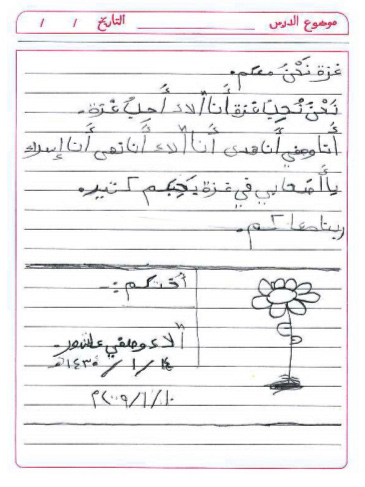 موضوع الدرس التاريخ / /
غزة نَحْنُ معكم.
نَحْنُ نُحِبُ يا غزة أَنا آلاء أُحِبُ غَزة.
أَنا وصفي أَنا هدى أَنا آلاء أَنا نهى أَنا إسراء
يا أَصْحابي في غزة بَحِبكم كتير.
ربنا معاكم.
أُختكم :-
آلاء وصفي عاشور.
١٤ / ١ / ١٤٣٠هـ
١٠ / ١ / ٢٠٠٩م